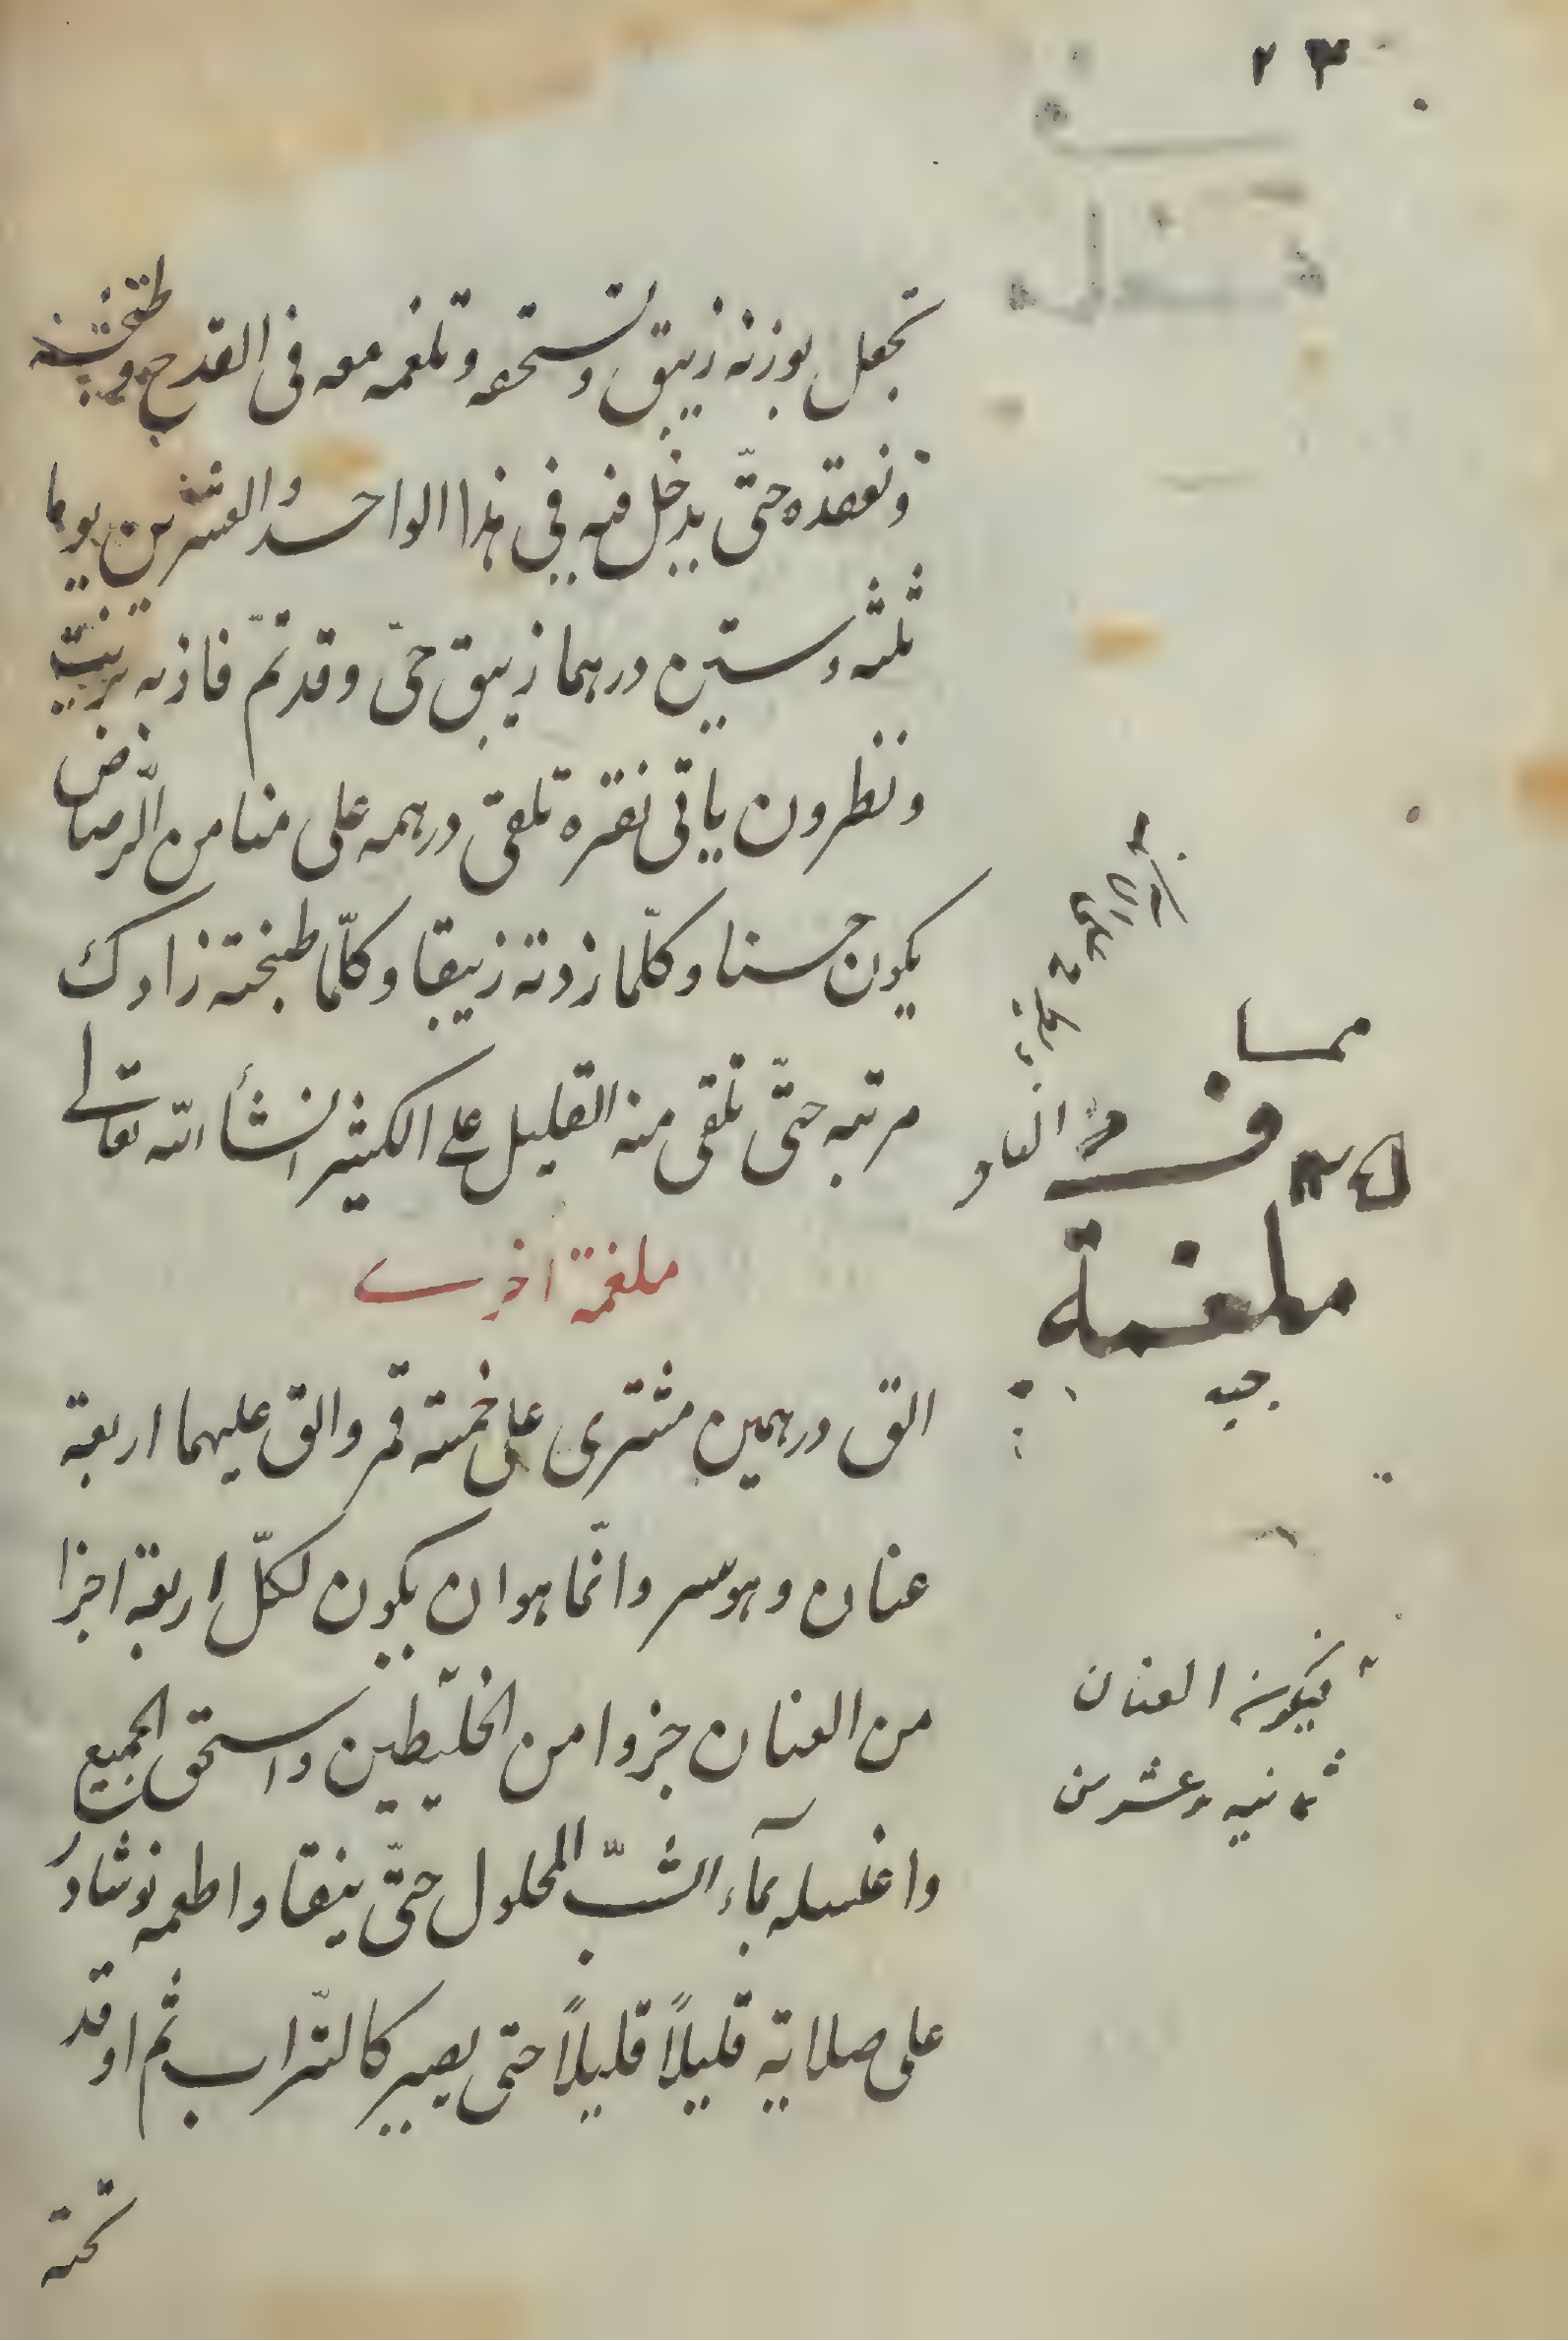 ٢٣
تجعل بوزنه زيبق وتسحقه وتلغمه معه فى القدح وتطبخه
وتعقده حتّى يدخل فيه في هذا الواحد والعشرين يوما
ثلثه وستين درهما زيبق حىّ وقد تمّ فاذبه بزيت
ونطرون ياتى نقره تلقى درهمه على منا من الرّصاص
يكون حسنا وكلّما زدته زيبقا وكلّما طبخته زادك
مرتبه حتّى تلقى منه القليل على الكثير انشأ الله تعالى
ملغمة اخرى
الق درهمين مشترى على خمسة قمر والق عليهما اربعة
عنان وهو سر وانّما هو ان يكون لكلّ اربعة اجزا
من العنان جزوا من الخليطين واسحق الجميع
واغسله بمآء الشّبّ المحلول حتّى ينقا واطعمه نوشادر
على صلاية قليلاً قليلاً حتى يصير كالتّراب ثم اوقد
تحته
ملغمة
فيكون العنان
ثمانيه وعشرين